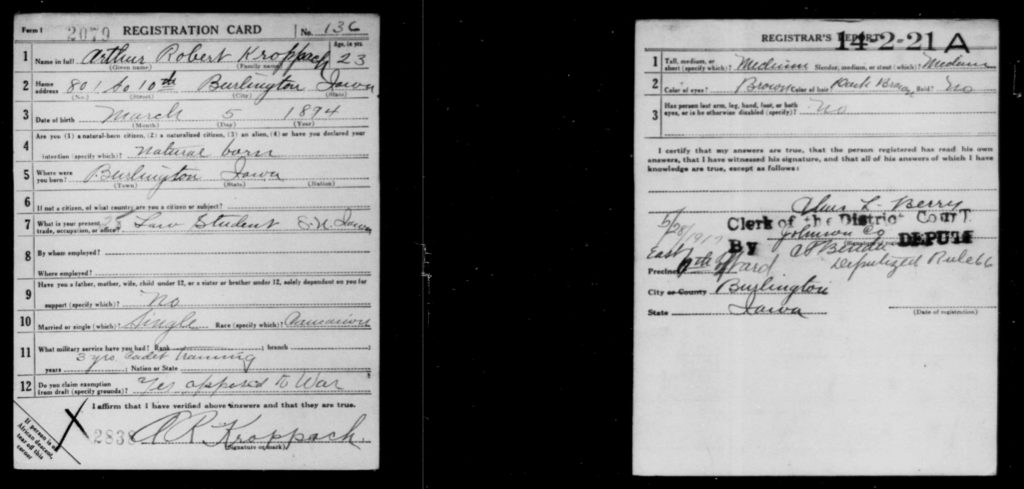 Form 1 2079 REGISTRATION CARD No. 136
Age, in yrs.
1 Name in full Arthur Robert Kroppach 23
(Given name) (Family name)
2 Home address 801 So 10th Burlington Iowa
(No.) (Street) (City) (State)
3 Date of birth March 5 1894
(Month) (Day) (Year)
4 Are you (1) a natural-born citizen, (2) a naturalized citizen, (3) an alien, (4) or have you declared your
intention (specify which)? natural born
5 Where were you born? Burlington Iowa
(Town) (State) (Nation)
6 If not a citizen, of what country are you a citizen or subject?
7 What is your present trade, occupation, or office? Law Student S.U. Iowa
8 By whom employed?
Where employed?
9 Have you a father, mother, wife, child under 12, or a sister or brother under 12, solely dependent on you for
support (specify which)? No
10 Married or single (which)? Single Race (specify which)? Caucasion
11 What military service have you had? Rank ; branch ;
years 3 yrs. Cadet training ; Nation or State
12 Do you claim exemption from draft (specify grounds)? Yes opposed to War
I affirm that I have verified above answers and that they are true.
If person is of African descent, tear off this corner
2838 A R Kroppach.
(Signature or mark)
REGISTRAR'S REPORT 14-2-21 A
1 Tall, medium, or short (specify which)? Medium Slender, medium, or stout (which)? Medium
2 Color of eyes? Brown Color of hair Dark Brown Bald? No
3 Has person lost arm, leg, hand, foot, or both eyes, or is he otherwise disabled (specify)? No
I certify that my answers are true, that the person registered has read his own
answers, that I have witnessed his signature, and that all of his answers of which I have
knowledge are true, except as follows:
L. Berry
5/28/1917 Clerk of the District Court
Johnson Co
By DEPUTY
East Deputized Rule 66
Precinct Ward
City or County Burlington
State Iowa
(Date of registration)